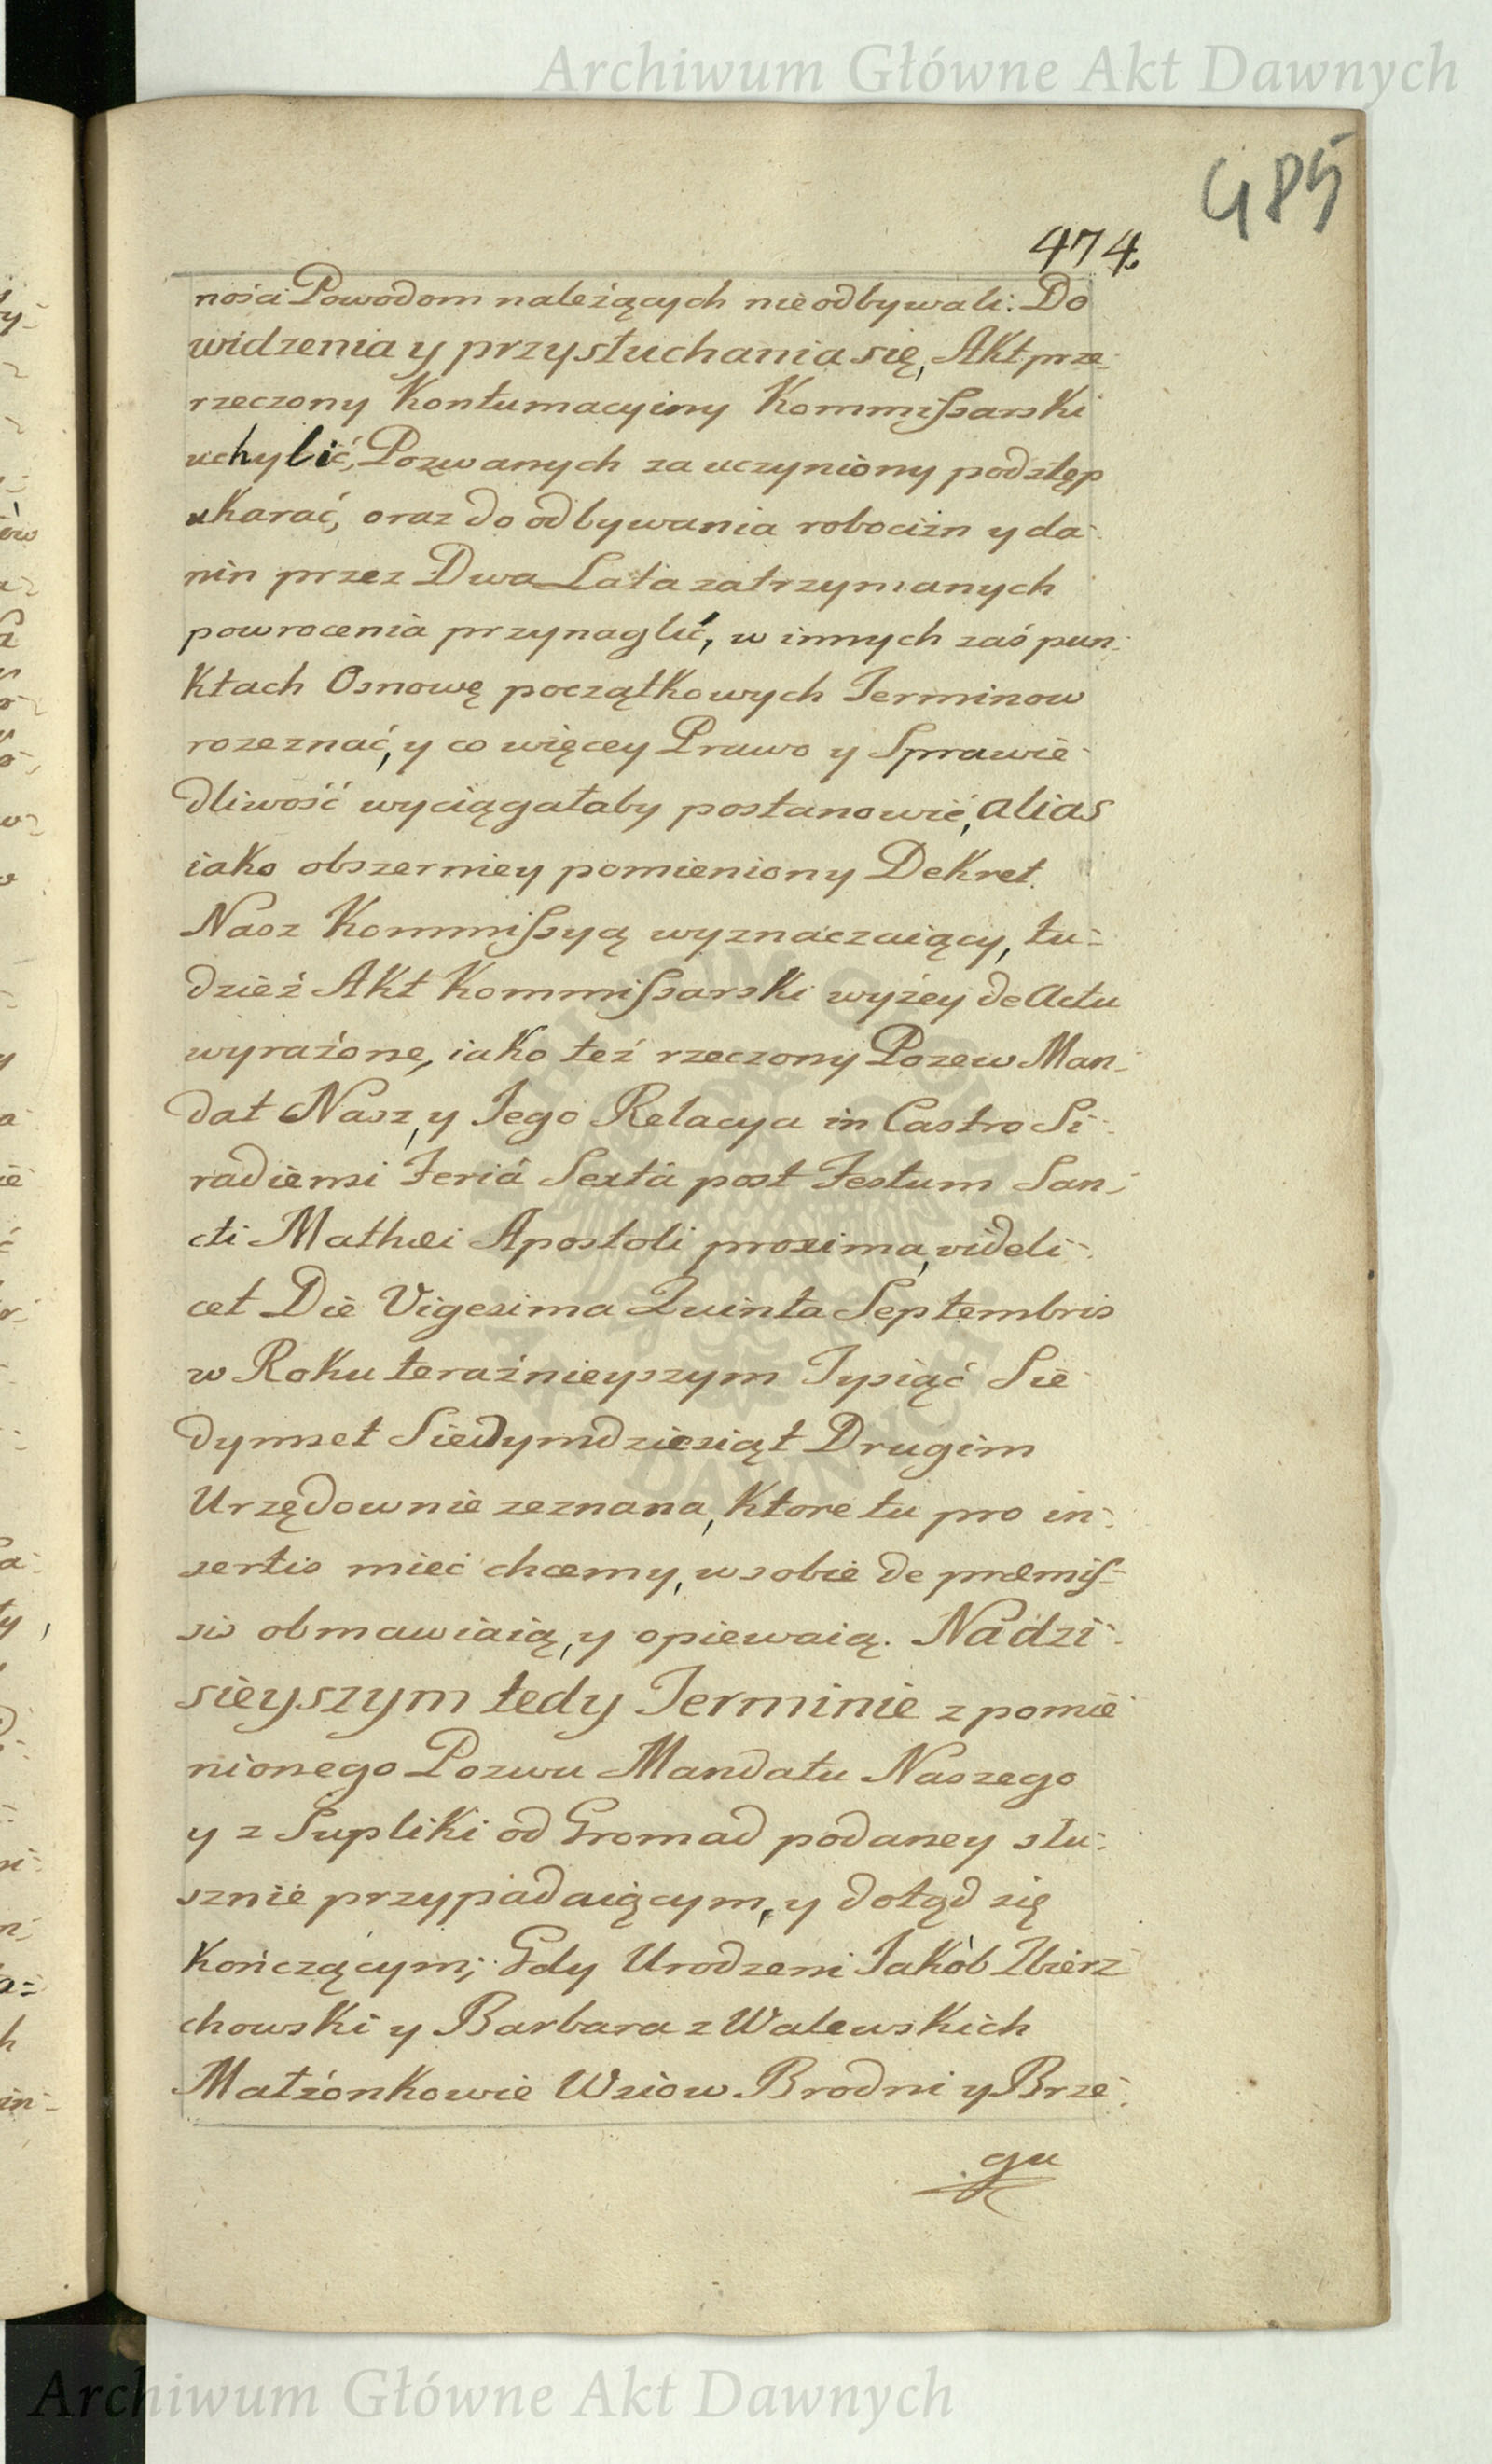 Archiwum Główne Akt Dawnych
485
474.
ności Powodom należących nie odbywali. Do
widzenia y przysłuchania się, Akt prze-
rzeczony Kontumacyiny Kommissarski
uchylić, Pozwanych za uczyniony podstęp
ukarać, oraz do odbywania robocizn y da-
nin przez Dwa Lata zatrzymanych
powrocenia przynaglić, w innych zaś pun-
ktach Osnowę początkowych Terminow
rozeznać, y co więcey Prawo y Sprawie-
dliwość wyciągałaby postanowić, alias
iako obszerniey pomieniony Dekret
Nasz Kommissyą wyznaczaiący, tu-
dzież Akt Kommissarski wyżey de Actu
wyrażone, iako też rzeczony Pozew Man-
dat Nasz, y Jego Relacya in Castro Si-
radiensi Feriâ Sextâ post Festum San-
cti Mathæi Apostoli proxima, videli-
cet Die Vigesima Quinta Septembris
w Roku teraźnieyszym Tysiąć Sie-
dymset Siedymdziesiąt Drugim
Urzędownie zeznana, Ktore tu pro in-
sertis mieć chcemy, w sobie de præmis-
sis obmawiaią, y opiewaią. Na dzi-
sieyszym tedy Terminie z pomie-
nionego Pozwu Mandatu Naszego
y z Supliki od Gromad podaney słu-
sznie przypadaiącym, y dotąd się
kończącym; Gdy Urodzeni Jakób Zbierz-
chowski y Barbara z Walewskich
Małżonkowie Wsiow Brodni y Brze-
gu
Archiwum Główne Akt Dawnych